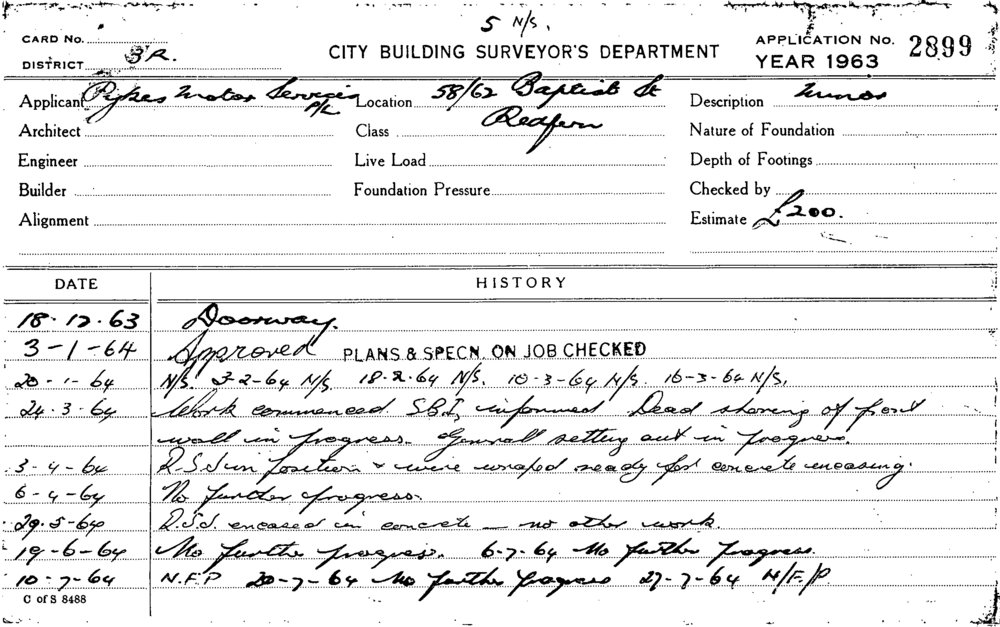 5 N/S.
CARD No.
DISTRICT 3R.
CITY BUILDING SURVEYOR'S DEPARTMENT
APPLICATION No. 2899
YEAR 1963
Applicant Pykes Motor Services P/L Location 58/62 Baptist St Description Minor
Architect Class Redfern Nature of Foundation
Engineer Live Load Depth of Footings
Builder Foundation Pressure Checked by
Alignment Estimate £200.
DATE HISTORY
18.12.63 Doorway.
3-1-64 Approved PLANS & SPECN. ON JOB CHECKED
20-1-64 N/S. 3-2-64 N/S. 18-2-64 N/S. 10-3-64 N/S. 16-3-64 N/S.
24.3-64 Work commenced. S.B.I. informed. Dead shoring of front
wall in progress. General setting out in progress.
3-4-64 R.S.Js in position & wire wraped ready for concrete encasing.
6-4-64 No further progress.
29.5-64 R.S.J. encased in concrete — no other work.
19-6-64 No further progress. 6-7-64 No further progress.
10-7-64 N.F.P 20-7-64 No further progress 27-7-64 N/F/P
C of S 8488